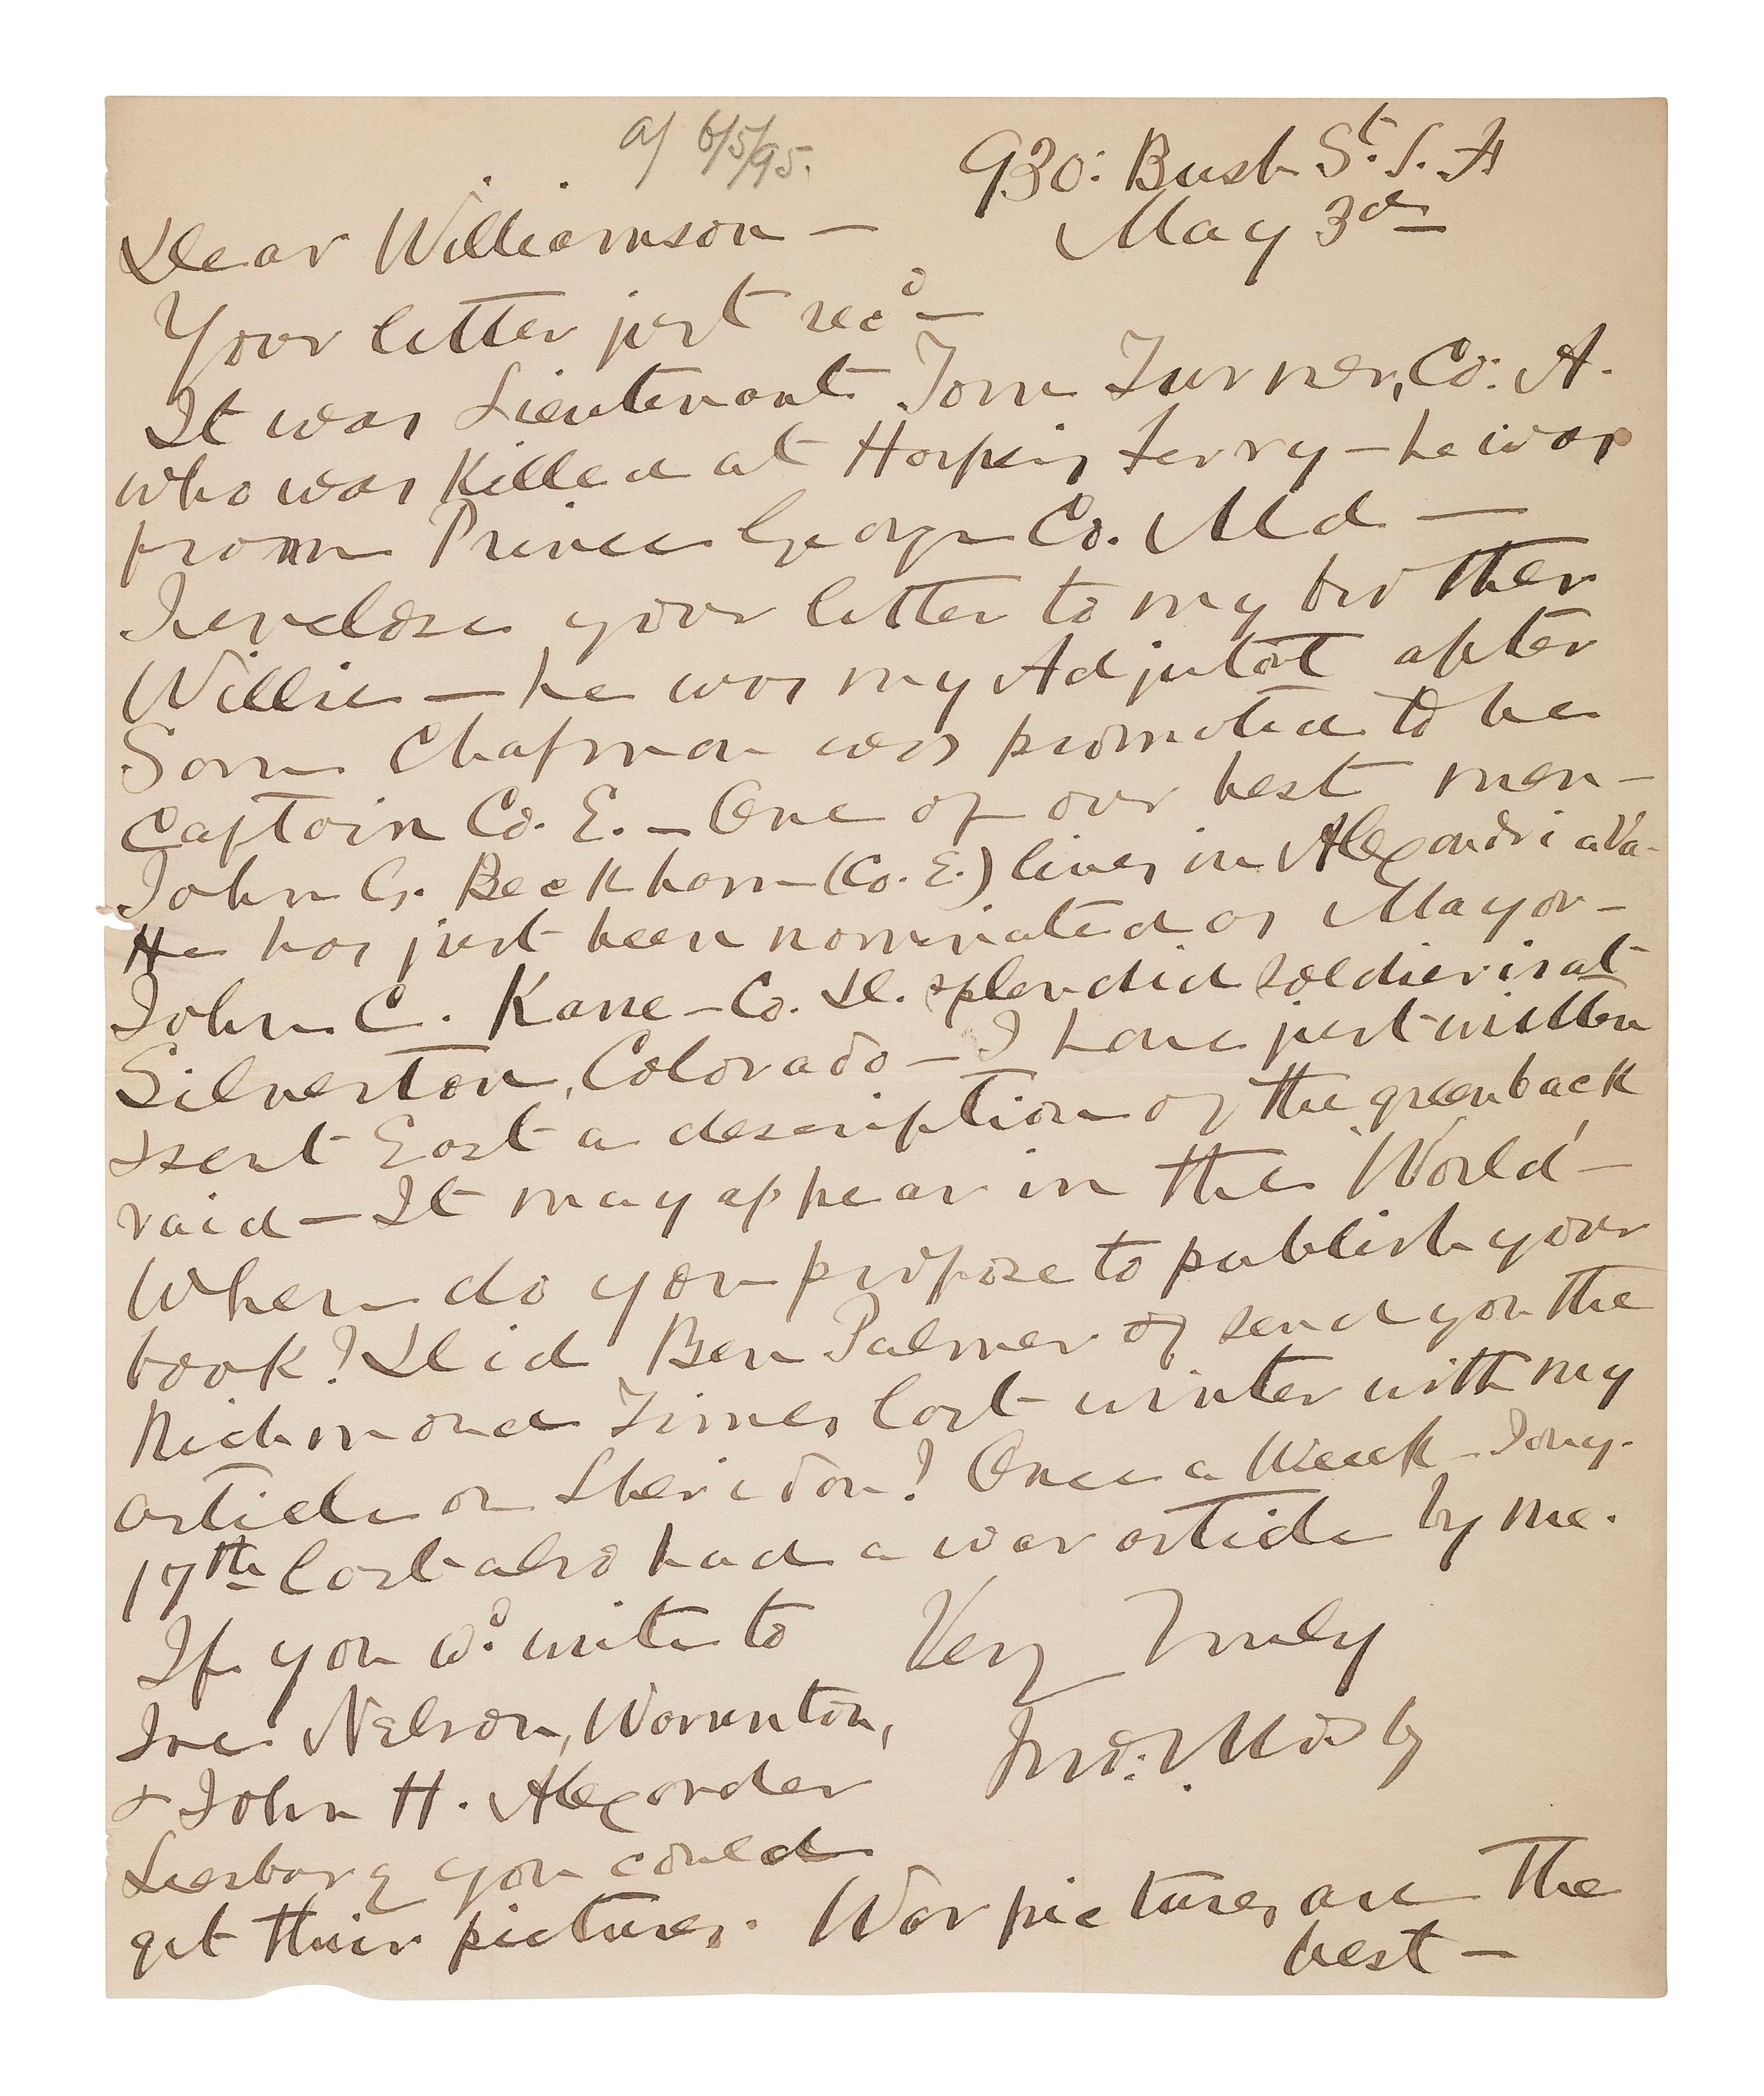 a/ 6/5/95.
930: Bush St. S. F
May 3d
Dear Williamson —
Your letter just recd —
It was Lieutenant Tom Turner, Co: A.
who was killed at Harpers Ferry — he was
from Prince George Co. Md —
I enclose your letter to my brother
Willie — he was my Adjutat after
Sam Chapman was promoted to be
Captain Co. E. — One of our best men —
John G. Beckham (Co. E.) lives in Alexandria Va —
He has just been nominated as Mayor —
John C. Kane — Co. D. splendid soldier is at
Silverton, Colorado — I have just written
& sent East a description of the greenback
raid — It may appear in the 'World' —
When do you propose to publish your
book? Did Ben Palmer send you the
Richmond Times last winter with my
article on Sheridan? Once a Week — Jany.
17th last also had a war article by me.
If you wd write to
Joe Nelson, Warrenton,
& John H. Alexander
Leesburg you could
get their pictures. War pictures are the
best —
Very Truly
Jno. S. Mosby